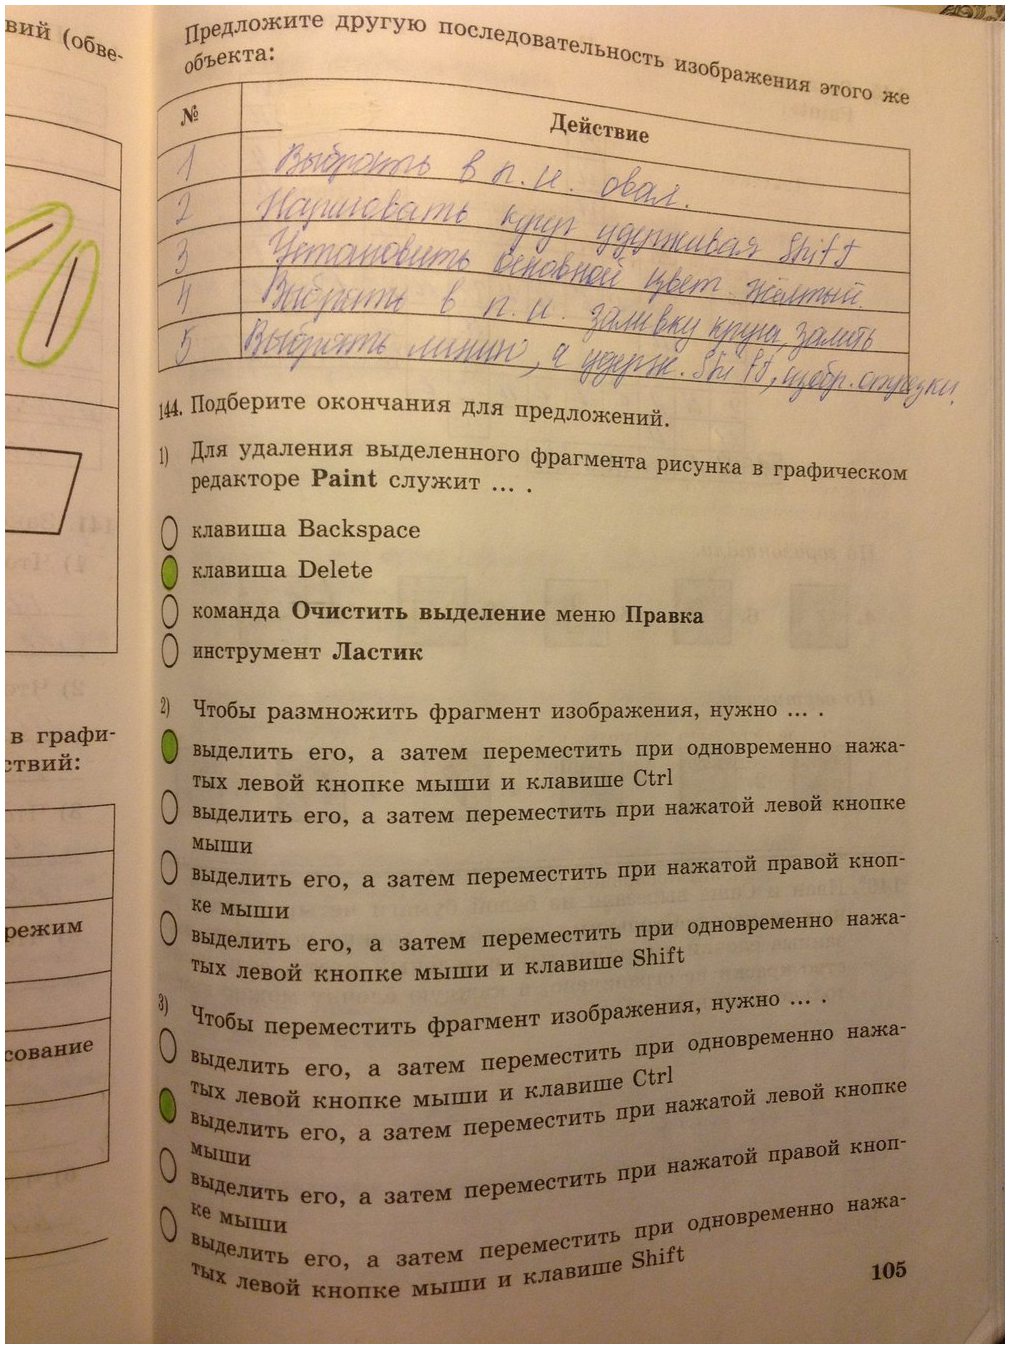 вий (обве-
Предложите другую последовательность изображения этого же
объекта:
№ Действие
1 Выбрать в п. и. овал.
2 Нарисовать круг удерживая Shift
3 Установить основной цвет жёлтый.
4 Выбрать в п. и. заливку круга, залить
5 Выбрать линию, и удерж. Shift, изобр. отрезки.
144. Подберите окончания для предложений.
1) Для удаления выделенного фрагмента рисунка в графическом
редакторе Paint служит ... .
клавиша Backspace
клавиша Delete
команда Очистить выделение меню Правка
инструмент Ластик
2) Чтобы размножить фрагмент изображения, нужно ... .
выделить его, а затем переместить при одновременно нажа-
тых левой кнопке мыши и клавише Ctrl
выделить его, а затем переместить при нажатой левой кнопке
мыши
выделить его, а затем переместить при нажатой правой кноп-
ке мыши
выделить его, а затем переместить при одновременно нажа-
тых левой кнопке мыши и клавише Shift
3) Чтобы переместить фрагмент изображения, нужно ... .
выделить его, а затем переместить при одновременно нажа-
тых левой кнопке мыши и клавише Ctrl
выделить его, а затем переместить при нажатой левой кнопке
мыши
выделить его, а затем переместить при нажатой правой кноп-
ке мыши
выделить его, а затем переместить при одновременно нажа-
тых левой кнопке мыши и клавише Shift
105
в графи-
ствий:
режим
сование